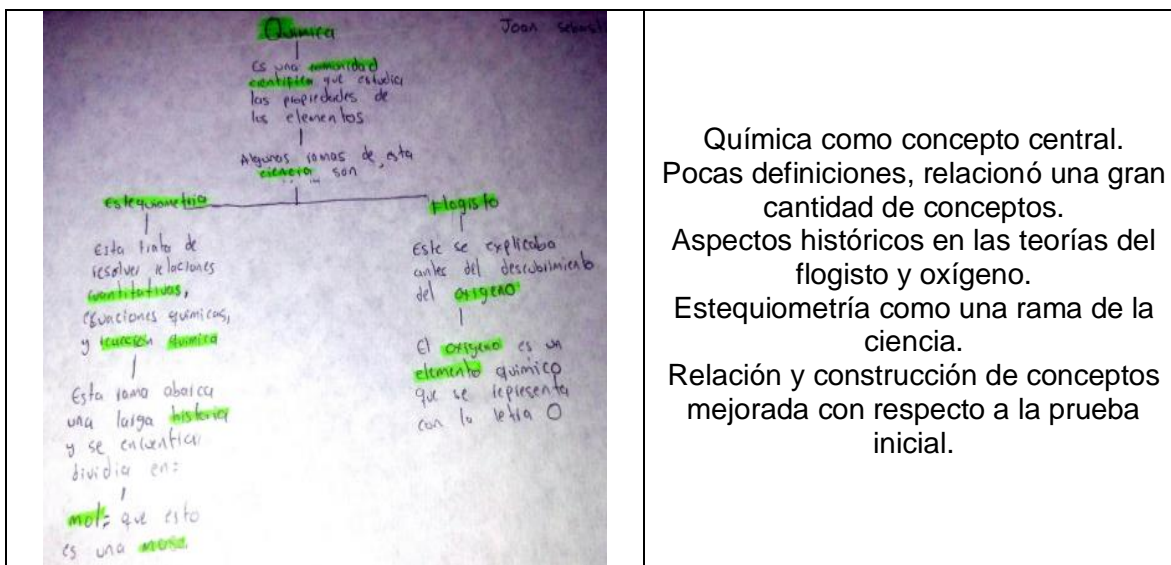 Química
Joan
Es una comunidad
científica que estudia
las propiedades de
los elementos
Algunas ramas de esta
ciencia son
Estequiometria
Esta trata de
resolver relaciones
cuantitativas,
químicas,
y química
Esta rama abarca
una larga historia
y se encuentra
dividia en:
mol: que esto
es una masa
Flogisto
Este se explicaba
antes del descubrimiento
del oxigeno
El oxigeno es un
elemento químico
que se representa
con la letra O
Química como concepto central.
Pocas definiciones, relacionó una gran
cantidad de conceptos.
Aspectos históricos en las teorías del
flogisto y oxígeno.
Estequiometría como una rama de la
ciencia.
Relación y construcción de conceptos
mejorada con respecto a la prueba
inicial.